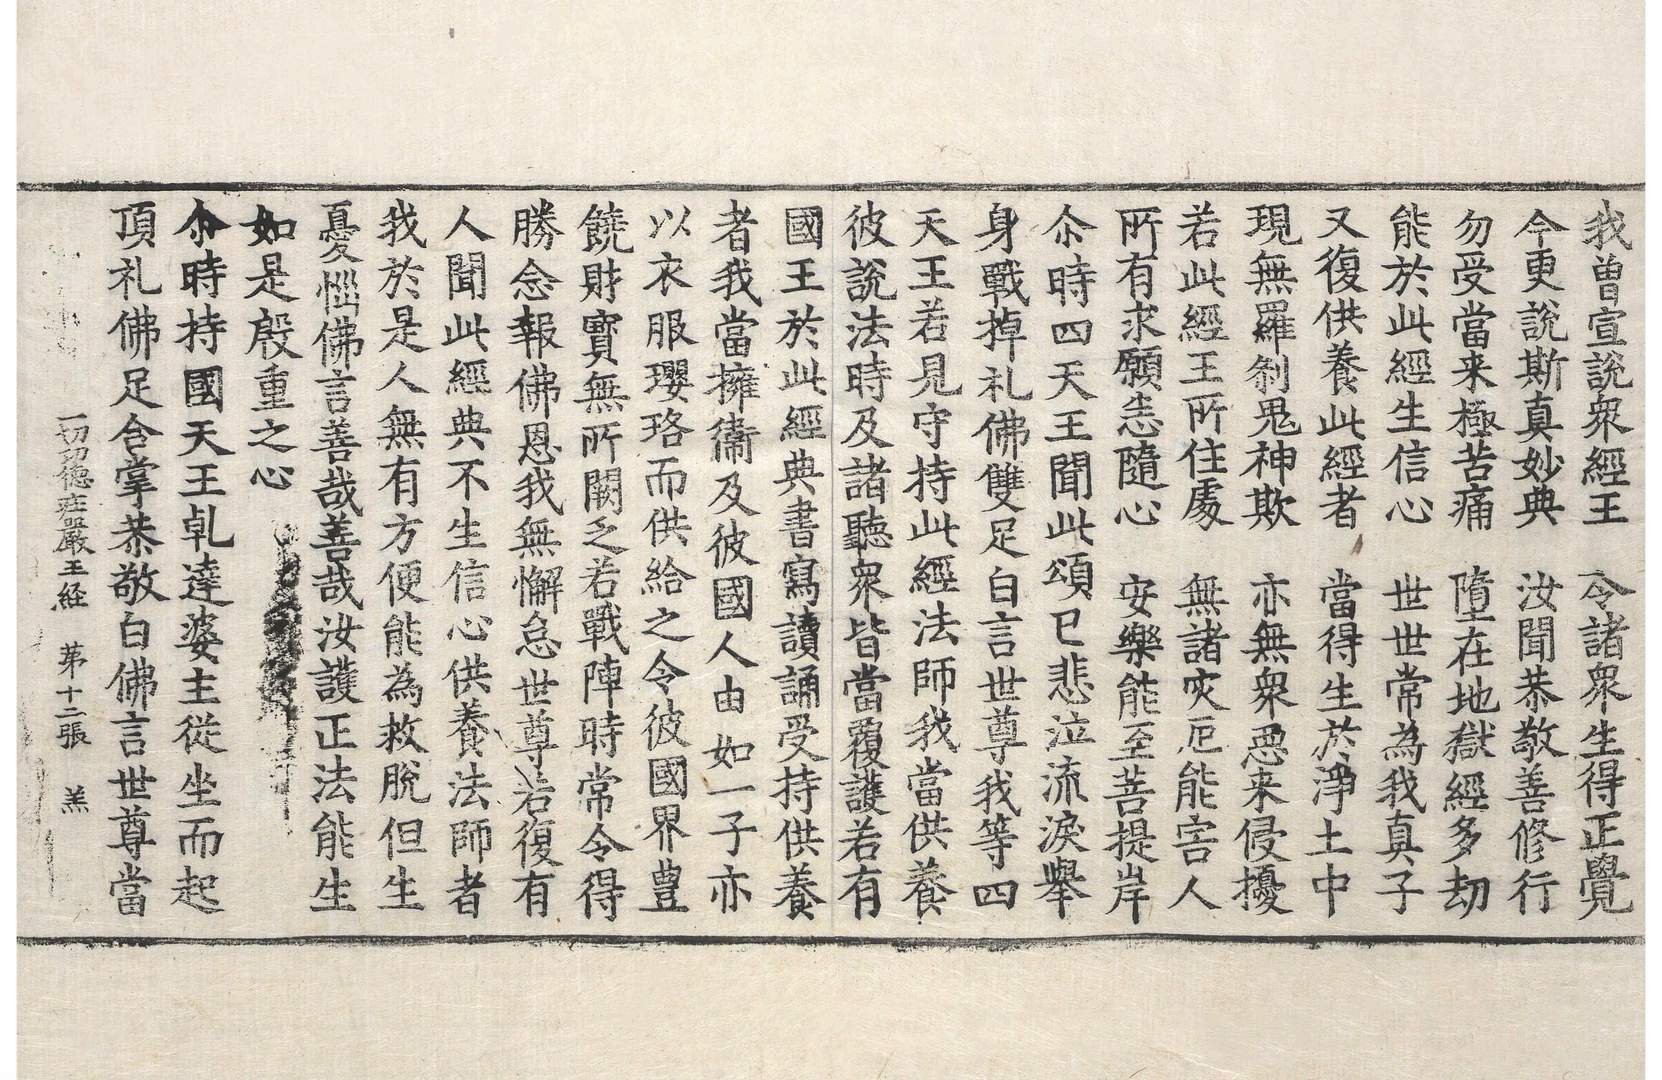 我曾宣說衆經王　令諸衆生得正覺
今更說斯真妙典　汝聞恭敬善修行
勿受當来極苦痛　墮在地獄經多劫
能於此經生信心　世世常為我真子
又復供養此經者　當得生於淨土中
現無羅剎鬼神欺　亦無衆惡来侵擾
若此經王所住處　無諸灾厄能害人
所有求願恙隨心　安樂能至菩提岸
尒時四天王聞此頌已悲泣流淚舉
身戰掉礼佛雙足白言世尊我等四
天王若見守持此經法師我當供養
彼說法時及諸聽衆皆當覆護若有
國王於此經典書寫讀誦受持供養
者我當擁衞及彼國人由如一子亦
以衣服瓔珞而供給之令彼國界豊
饒財寳無所闕乏若戰陣時常令得
勝念報佛恩我無懈怠世尊若復有
人聞此經典不生信心供養法師者
我於是人無有方便能為救脫但生
憂惱佛言善哉善哉汝護正法能生
如是殷重之心
尒時持國天王乹達婆主從坐而起
頂礼佛足合掌恭敬白佛言世尊當
一切功德莊嚴王経　苐十二張　羔